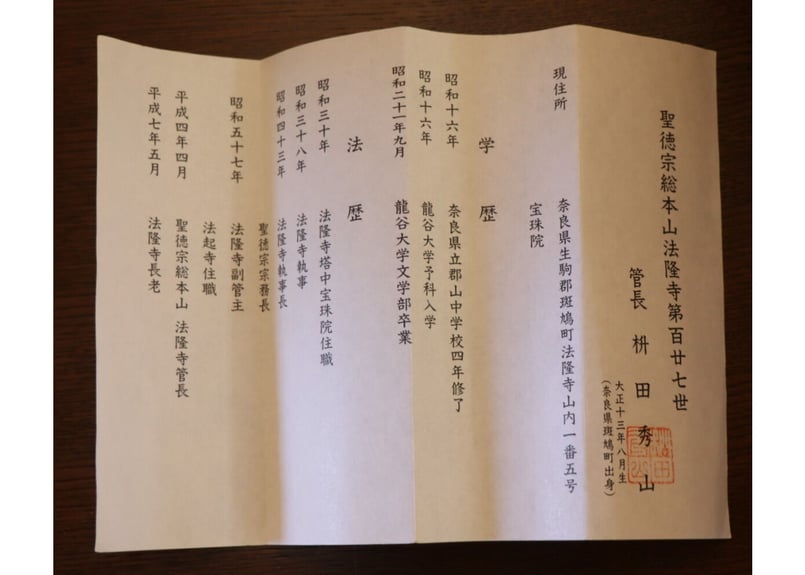 聖徳宗総本山法隆寺第百廿七世
管長 枡田秀山
大正十三年八月生
(奈良県斑鳩町出身)
現住所
奈良県生駒郡斑鳩町法隆寺山内一番五号
宝珠院
学歴
昭和十六年 奈良県立郡山中学校四年修了
昭和十六年 龍谷大学予科入学
昭和二十一年九月 龍谷大学文学部卒業
法歴
昭和三十年 法隆寺塔中宝珠院住職
昭和三十八年 法隆寺執事
昭和四十三年 法隆寺執事長
聖徳宗宗務長
昭和五十七年 法隆寺副管主
法起寺住職
平成四年四月 聖徳宗総本山 法隆寺管長
平成七年五月 法隆寺長老